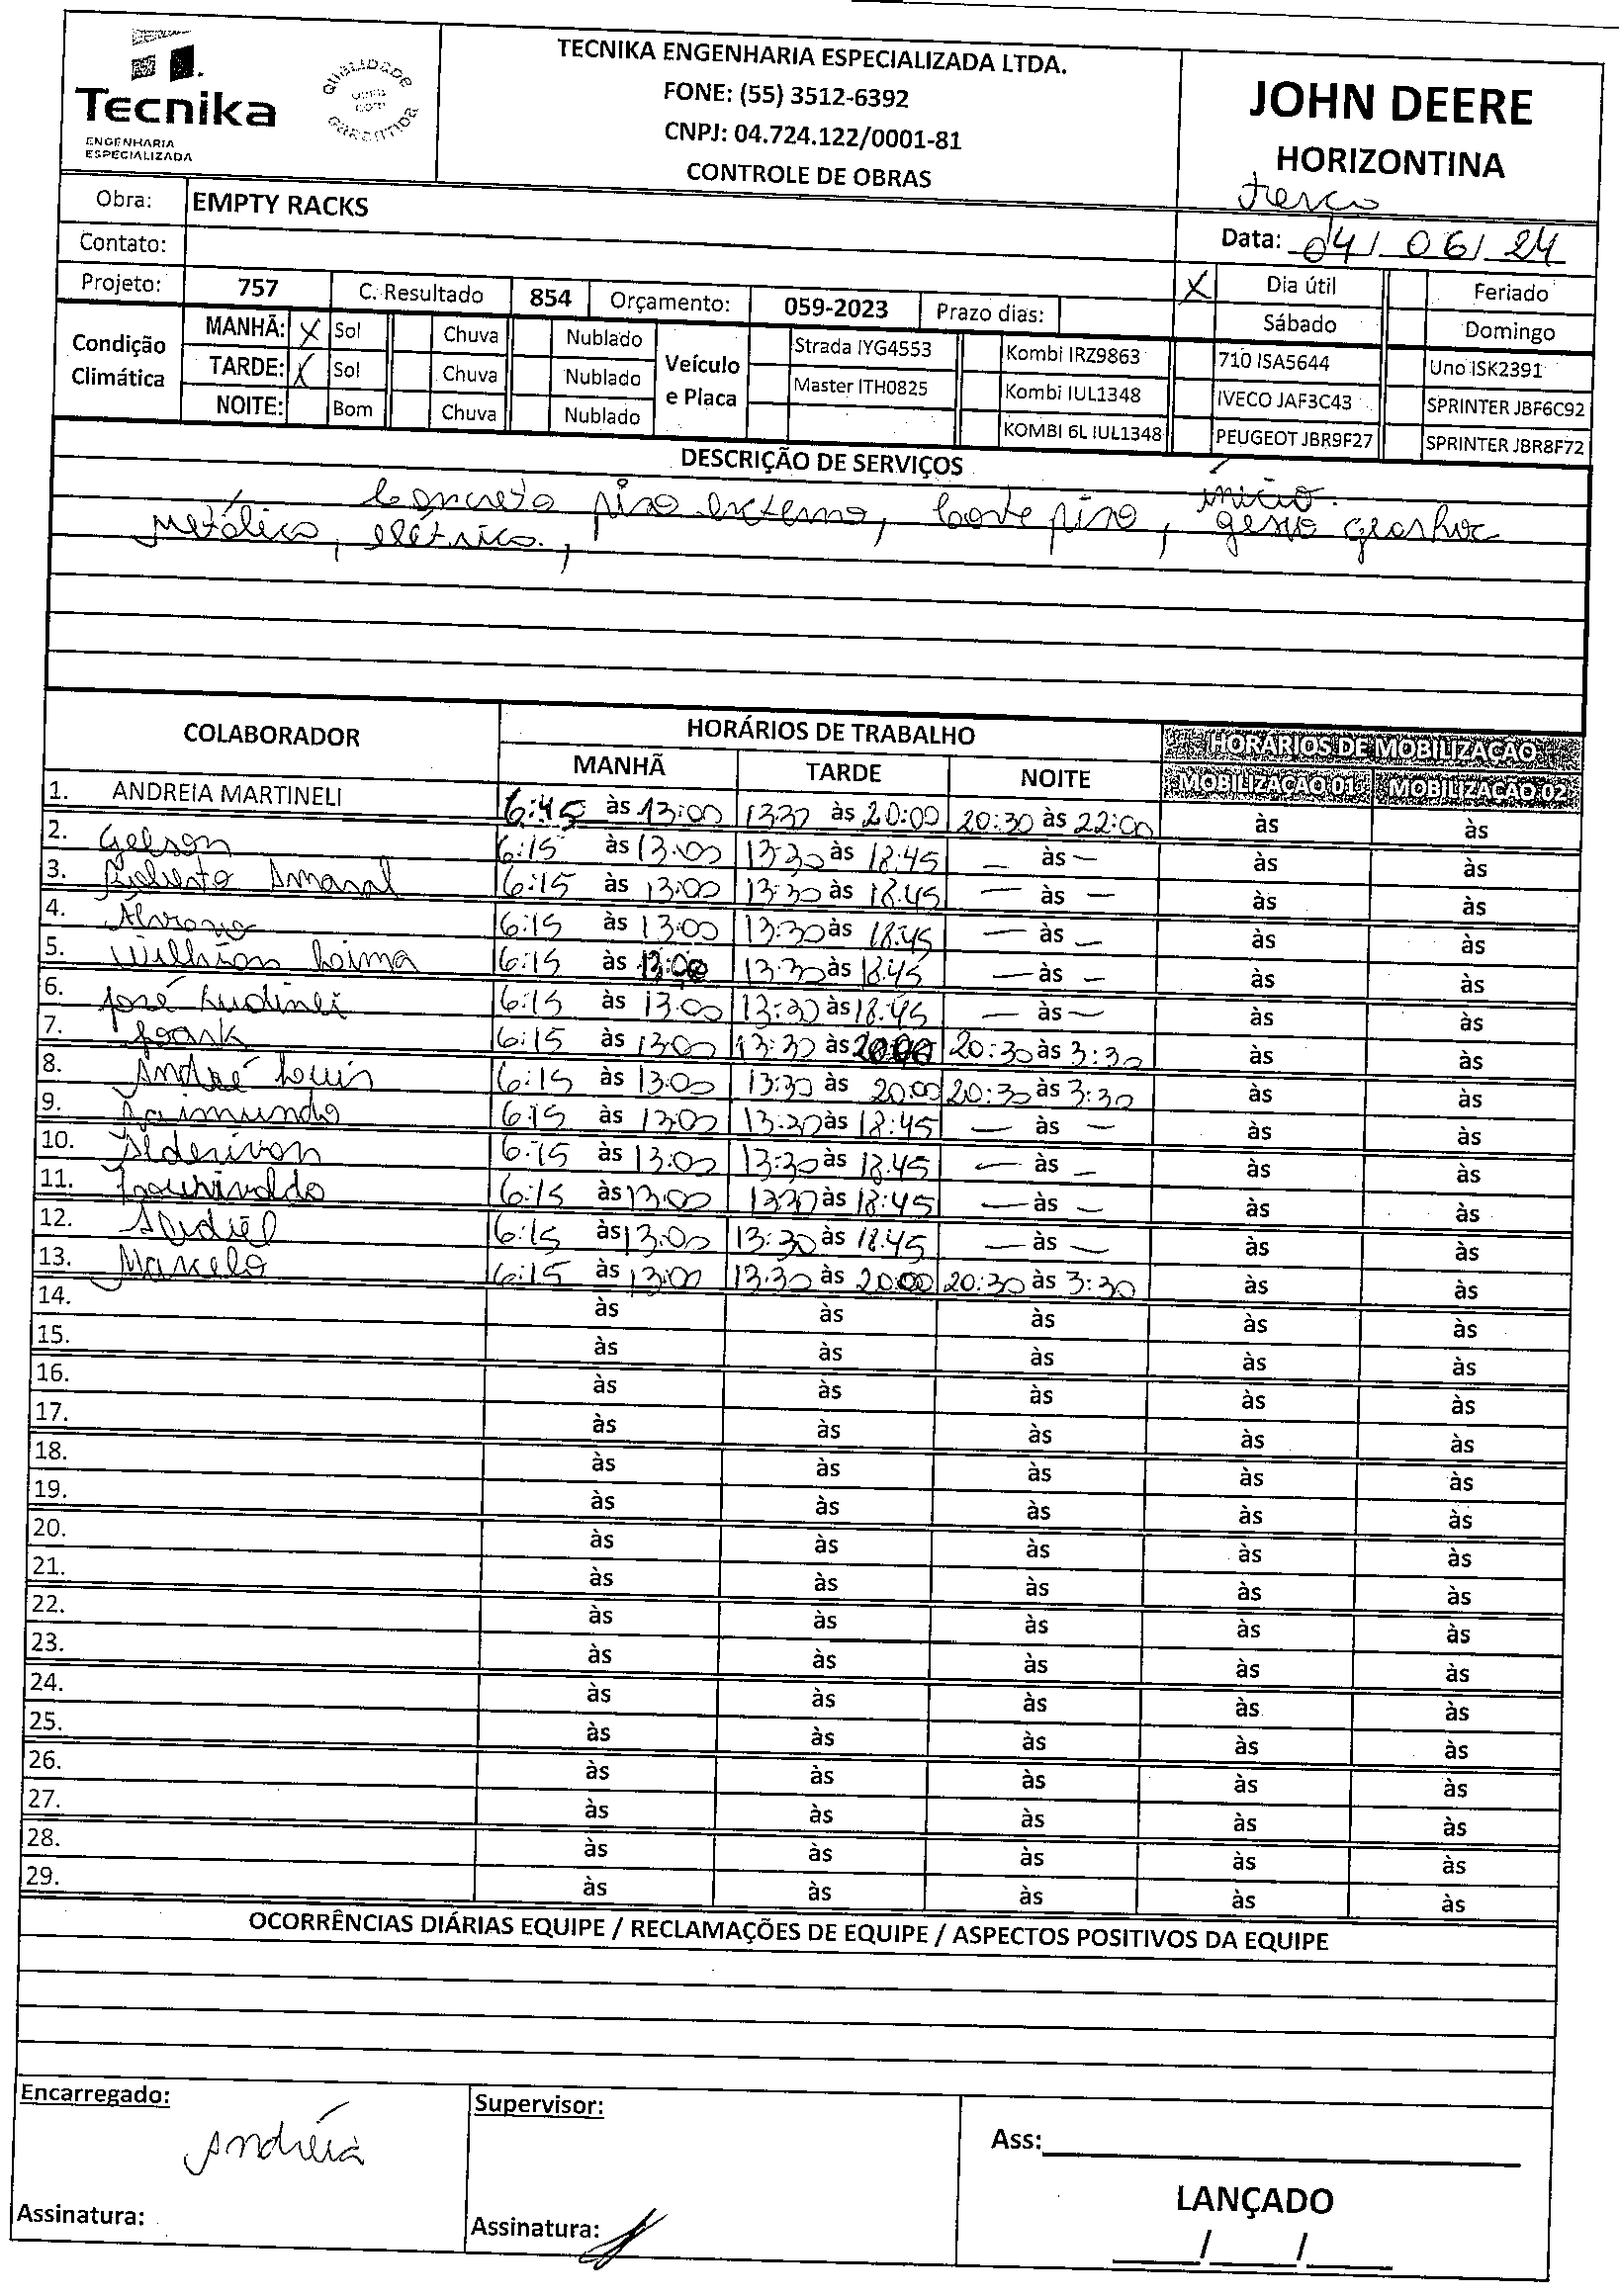 Tecnika
ENGENHARIA
ESPECIALIZADA
QUALIDADE
GARANTIDA
TECNIKA ENGENHARIA ESPECIALIZADA LTDA.
FONE: (55) 3512-6392
CNPJ: 04.724.122/0001-81
CONTROLE DE OBRAS
JOHN DEERE
HORIZONTINA
terça
Obra: EMPTY RACKS
Data: 04/06/24
Contato:
Projeto: 757 C. Resultado 854 Orçamento: 059-2023 Prazo dias: X Dia útil Feriado
Sábado Domingo
Condição Climática
MANHÃ: X Sol Chuva Nublado
TARDE: X Sol Chuva Nublado
NOITE: Bom Chuva Nublado
Veículo e Placa
Strada IYG4553 Kombi IRZ9863 710 ISA5644 Uno ISK2391
Master ITH0825 Kombi IUL1348 IVECO JAF3C43 SPRINTER JBF6C92
KOMBI 6L IUL1348 PEUGEOT JBR9F27 SPRINTER JBR8F72
DESCRIÇÃO DE SERVIÇOS
Concreto piso externo, corte piso, início gesso
Metálico, elétrica,
COLABORADOR HORÁRIOS DE TRABALHO HORÁRIOS DE MOBILIZAÇÃO
MANHÃ TARDE NOITE MOBILIZAÇÃO 01 MOBILIZAÇÃO 02
1. ANDREIA MARTINELI 6:45 às 13:00 13:30 às 20:00 20:30 às 22:00 às às
2. Gelson 6:15 às 13:00 13:30 às 18:45 — às — às às
3. Roberto Amaral 6:15 às 13:00 13:30 às 18:45 — às — às às
4. Álvaro 6:15 às 13:00 13:30 às 18:45 — às — às às
5. Willian Loima 6:15 às 13:00 13:30 às 18:45 — às — às às
6. José Rudinei 6:15 às 13:00 13:30 às 18:45 — às — às às
7. 6:15 às 13:00 13:30 às 20:00 20:30 às 3:30 às às
8. André Luis 6:15 às 13:00 13:30 às 20:00 20:30 às 3:30 às às
9. Raimundo 6:15 às 13:00 13:30 às 18:45 — às — às às
10. Alderivan 6:15 às 13:00 13:30 às 18:45 — às — às às
11. Lourivaldo 6:15 às 13:00 13:30 às 18:45 — às — às às
12. 6:15 às 13:00 13:30 às 18:45 — às — às às
13. Marcelo 6:15 às 13:00 13:30 às 20:00 20:30 às 3:30 às às
14. às às às às às
15. às às às às às
16. às às às às às
17. às às às às às
18. às às às às às
19. às às às às às
20. às às às às às
21. às às às às às
22. às às às às às
23. às às às às às
24. às às às às às
25. às às às às às
26. às às às às às
27. às às às às às
28. às às às às às
29. às às às às às
OCORRÊNCIAS DIÁRIAS EQUIPE / RECLAMAÇÕES DE EQUIPE / ASPECTOS POSITIVOS DA EQUIPE
Encarregado:
Andréia
Assinatura:
Supervisor:
Assinatura:
Ass:
LANÇADO
/ /